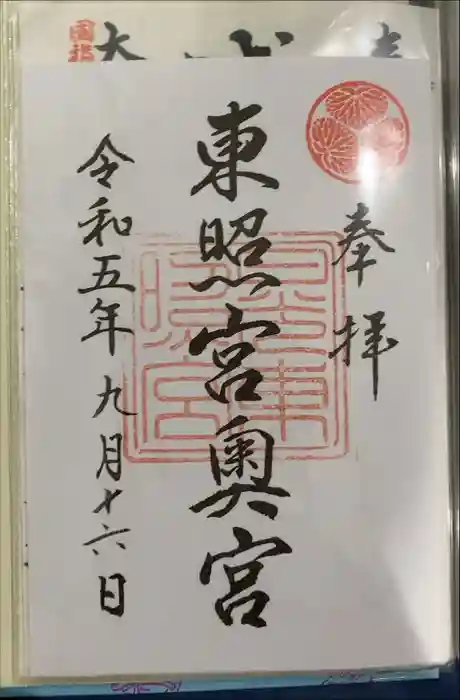 奉拝
東照宮奥宮
令和五年九月十六日
大